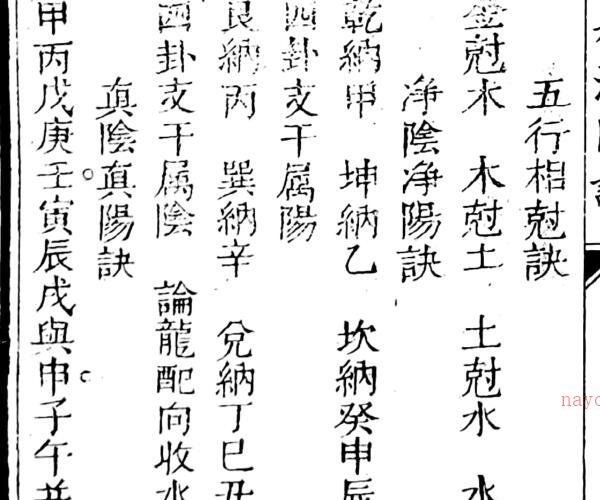 五行相尅訣
金尅木　木尅土　土尅水　水
净陰净陽訣
乾納甲　坤納乙　坎納癸申辰
四卦支干属陽
艮納丙　巽納辛　兌納丁巳丑
四卦支干属陰　論龍配向收水
真陰真陽訣
甲丙戊庚壬。寅辰戌與申。子午
nayo